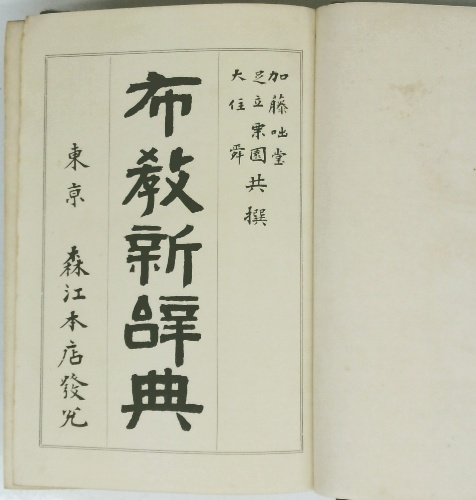 加藤咄堂
足立栗園共撰
大住舜
布教新辞典
東京 森江本店發兌